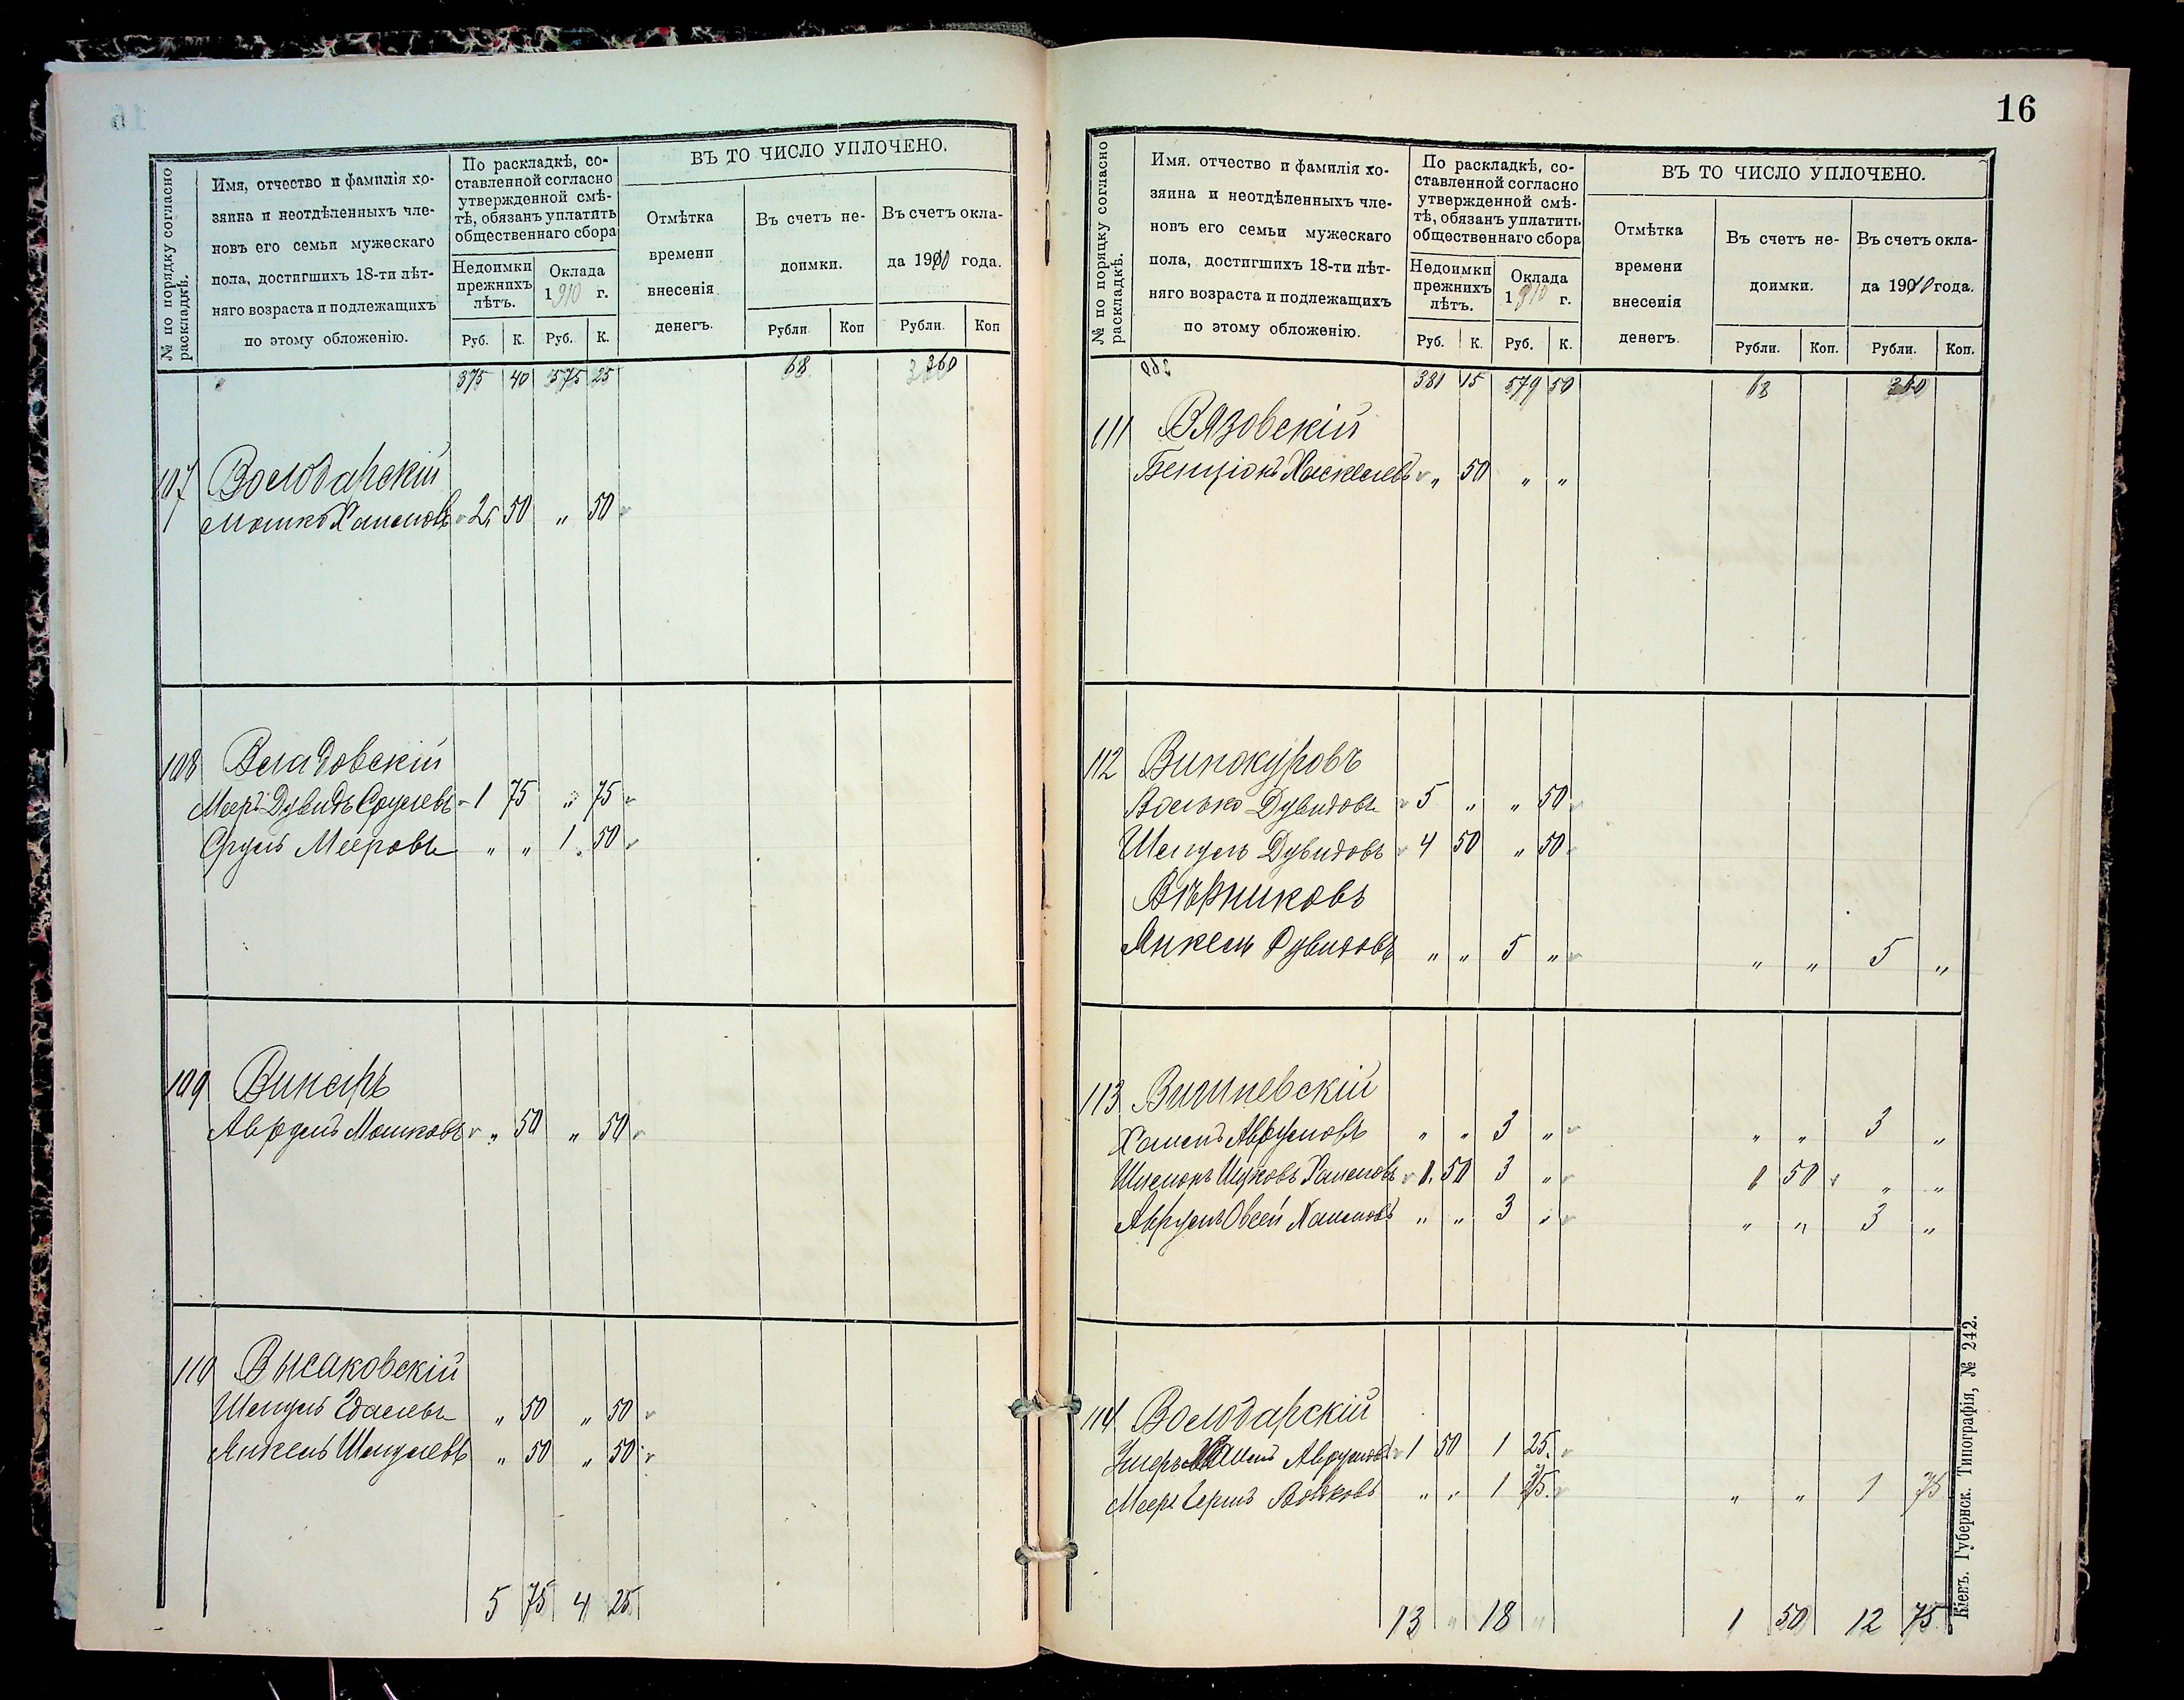 16
№ по порядку согласно раскладкѣ.
Имя, отчество и фамилія хо-
зяина и неотдѣленныхъ чле-
новъ его семьи мужескаго
пола, достигшихъ 18-ти лѣт-
няго возраста и подлежащихъ
по этому обложенію.
По раскладкѣ, со-
ставленной согласно
утвержденной смѣ-
тѣ, обязанъ уплатить
общественнаго сбора
Недоимки прежнихъ лѣтъ.
Оклада 1910 г.
Руб. К. Руб. К.
ВЪ ТО ЧИСЛО УПЛОЧЕНО.
Отмѣтка
времени
внесенія
денегъ.
Въ счетъ не-
доимки.
Въ счетъ окла-
да 1910 года.
Рубли. Коп Рубли. Коп
375 40 575 25 68 360
107 Володарскій
Мошко Хаимовъ 2 50 „ 50
108 Владовскій
Мееръ Дувидъ Срулевъ 1 75 „ 75
Сруль Мееровъ „ „ 1 50
109 Винаръ
Аврумъ Мошковъ „ 50 „ 50
110 Высаковскій
Шмуль Эдалевъ „ 50 „ 50
Янкель Шмулевъ „ 50 „ 50
5 75 4 25
№ по порядку согласно раскладкѣ.
Имя, отчество и фамилія хо-
зяина и неотдѣленныхъ чле-
новъ его семьи мужескаго
пола, достигшихъ 18-ти лѣт-
няго возраста и подлежащихъ
по этому обложенію.
По раскладкѣ, со-
ставленной согласно
утвержденной смѣ-
тѣ, обязанъ уплатить
общественнаго сбора
Недоимки прежнихъ лѣтъ.
Оклада 1910 г.
Руб. К. Руб. К.
ВЪ ТО ЧИСЛО УПЛОЧЕНО.
Отмѣтка
времени
внесенія
денегъ.
Въ счетъ не-
доимки.
Въ счетъ окла-
да 1910 года.
Рубли. Коп. Рубли. Коп.
381 15 579 50 68 360
111 Вязовскій
Бенціонъ Хаскелевъ „ 50 „ „
112 Винокуровъ
Волько Дувидовъ 5 „ „ 50
Шмуль Дувидовъ 4 50 „ 50
Вѣрниковъ
Янкель Дувидовъ „ „ 5 „ „ „ 5 „
113 Вишневскій
Хаимъ Аврумовъ „ „ 3 „ „ „ 3 „
Шлемокъ Ицковъ Хаимовъ 1 50 3 „ 1 50 „ „
Аврумъ Овсей Хаимовъ „ „ 3 „ „ „ 3 „
114 Володарскій
Хаимъ Аврумовъ 1 50 1 25
Мееръ Гершъ Волковъ „ „ 1 75 „ „ 1 75
13 „ 18 „ 1 50 12 75
Кіевъ. Губернск. Типографія, № 242.